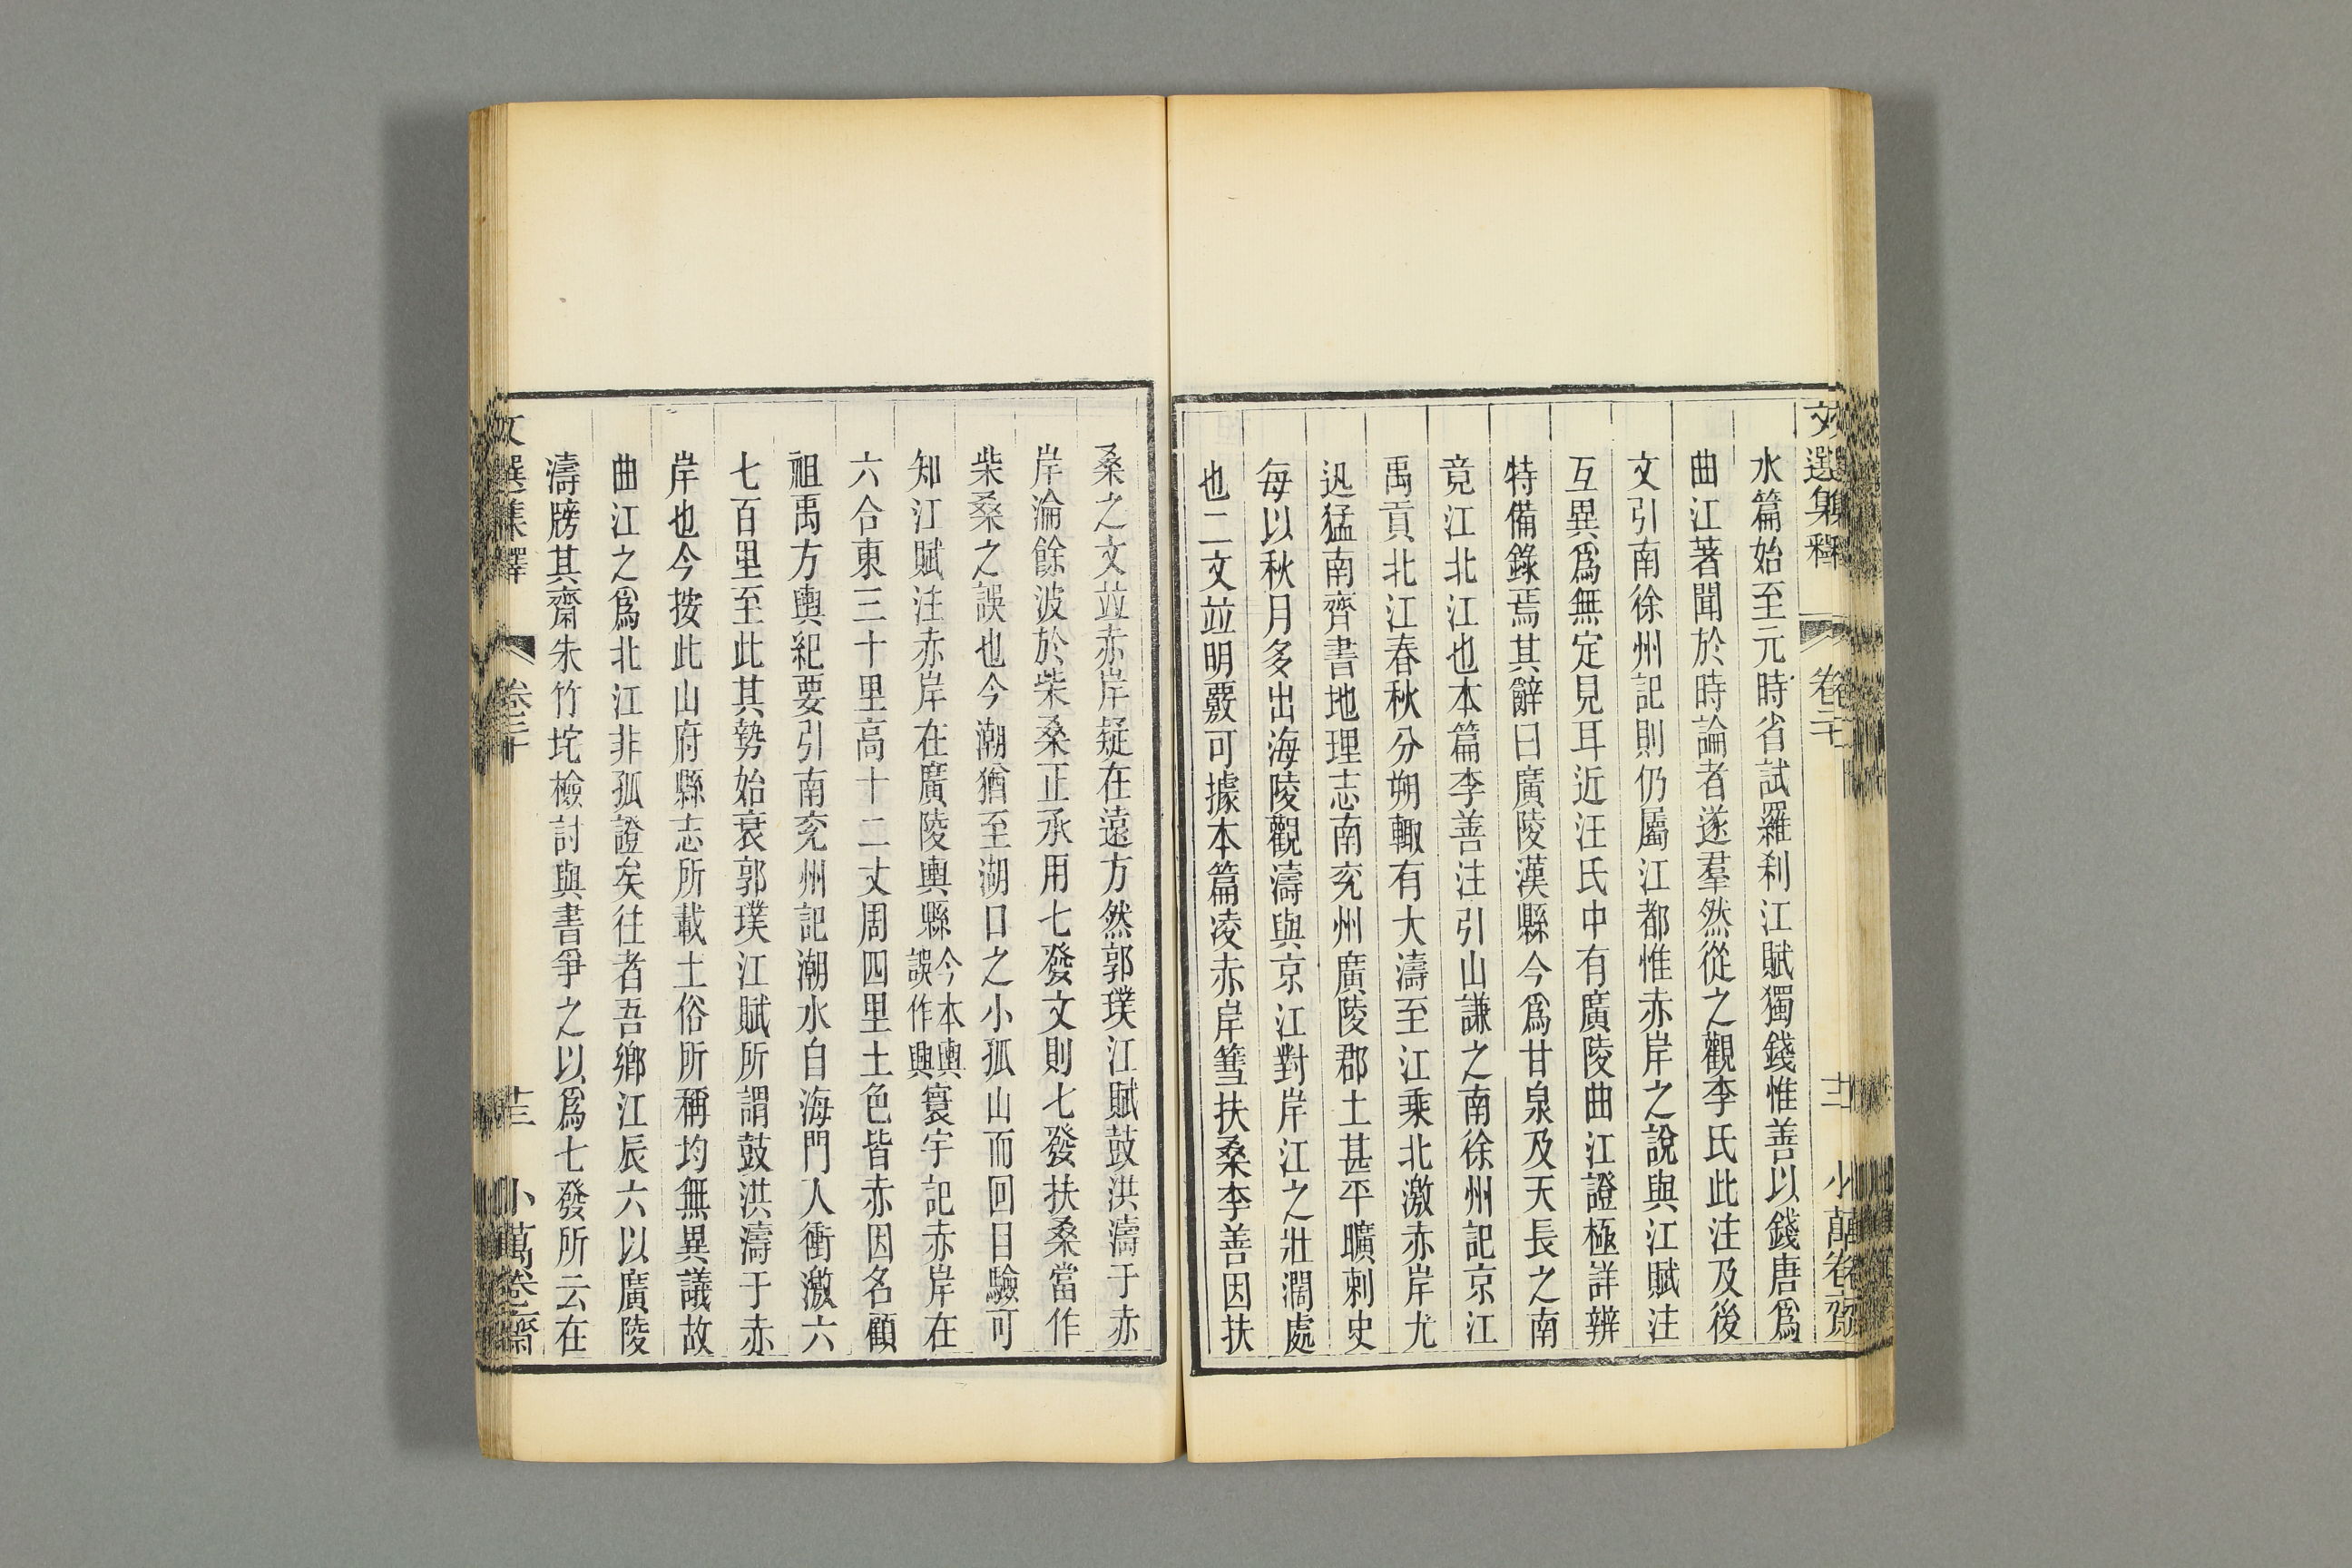 文選集釋 卷二十 十二 小萬卷齋
水篇始至元時省試羅刹江賦獨錢惟善以錢唐爲
曲江著聞於時論者遂羣然從之觀李氏此注及後
文引南徐州記則仍屬江都惟赤岸之說與江賦注
互異爲無定見耳近汪氏中有廣陵曲江證極詳辨
特備錄焉其辭曰廣陵漢縣今爲甘泉及天長之南
竟江北江也本篇李善注引山謙之南徐州記京江
禹貢北江春秋分朔輙有大濤至江乗北激赤岸尤
迅猛南齊書地理志南兖州廣陵郡土甚平曠刺史
每以秋月多出海陵觀濤與京江對岸江之壯濶處
也二文竝明覈可據本篇凌赤岸篲扶桑李善因扶
桑之文竝赤岸疑在遠方然郭璞江賦鼓洪濤于赤
岸淪餘波於柴桑正承用七發文則七發扶桑當作
柴桑之誤也今潮猶至湖口之小孤山而回目驗可
知江賦注赤岸在廣陵輿縣今本輿誤作興寰宇記赤岸在
六合東三十里高十二丈周四里土色皆赤因名顧
祖禹方輿紀要引南兖州記潮水自海門入衝激六
七百里至此其勢始衰郭璞江賦所謂鼓洪濤于赤
岸也今按此山府縣志所載土俗所稱均無異議故
曲江之爲北江非孤證矣往者吾鄉江辰六以廣陵
濤牓其齋朱竹垞檢討與書爭之以爲七發所云在
文選集釋 卷二十 十三 小萬卷齋